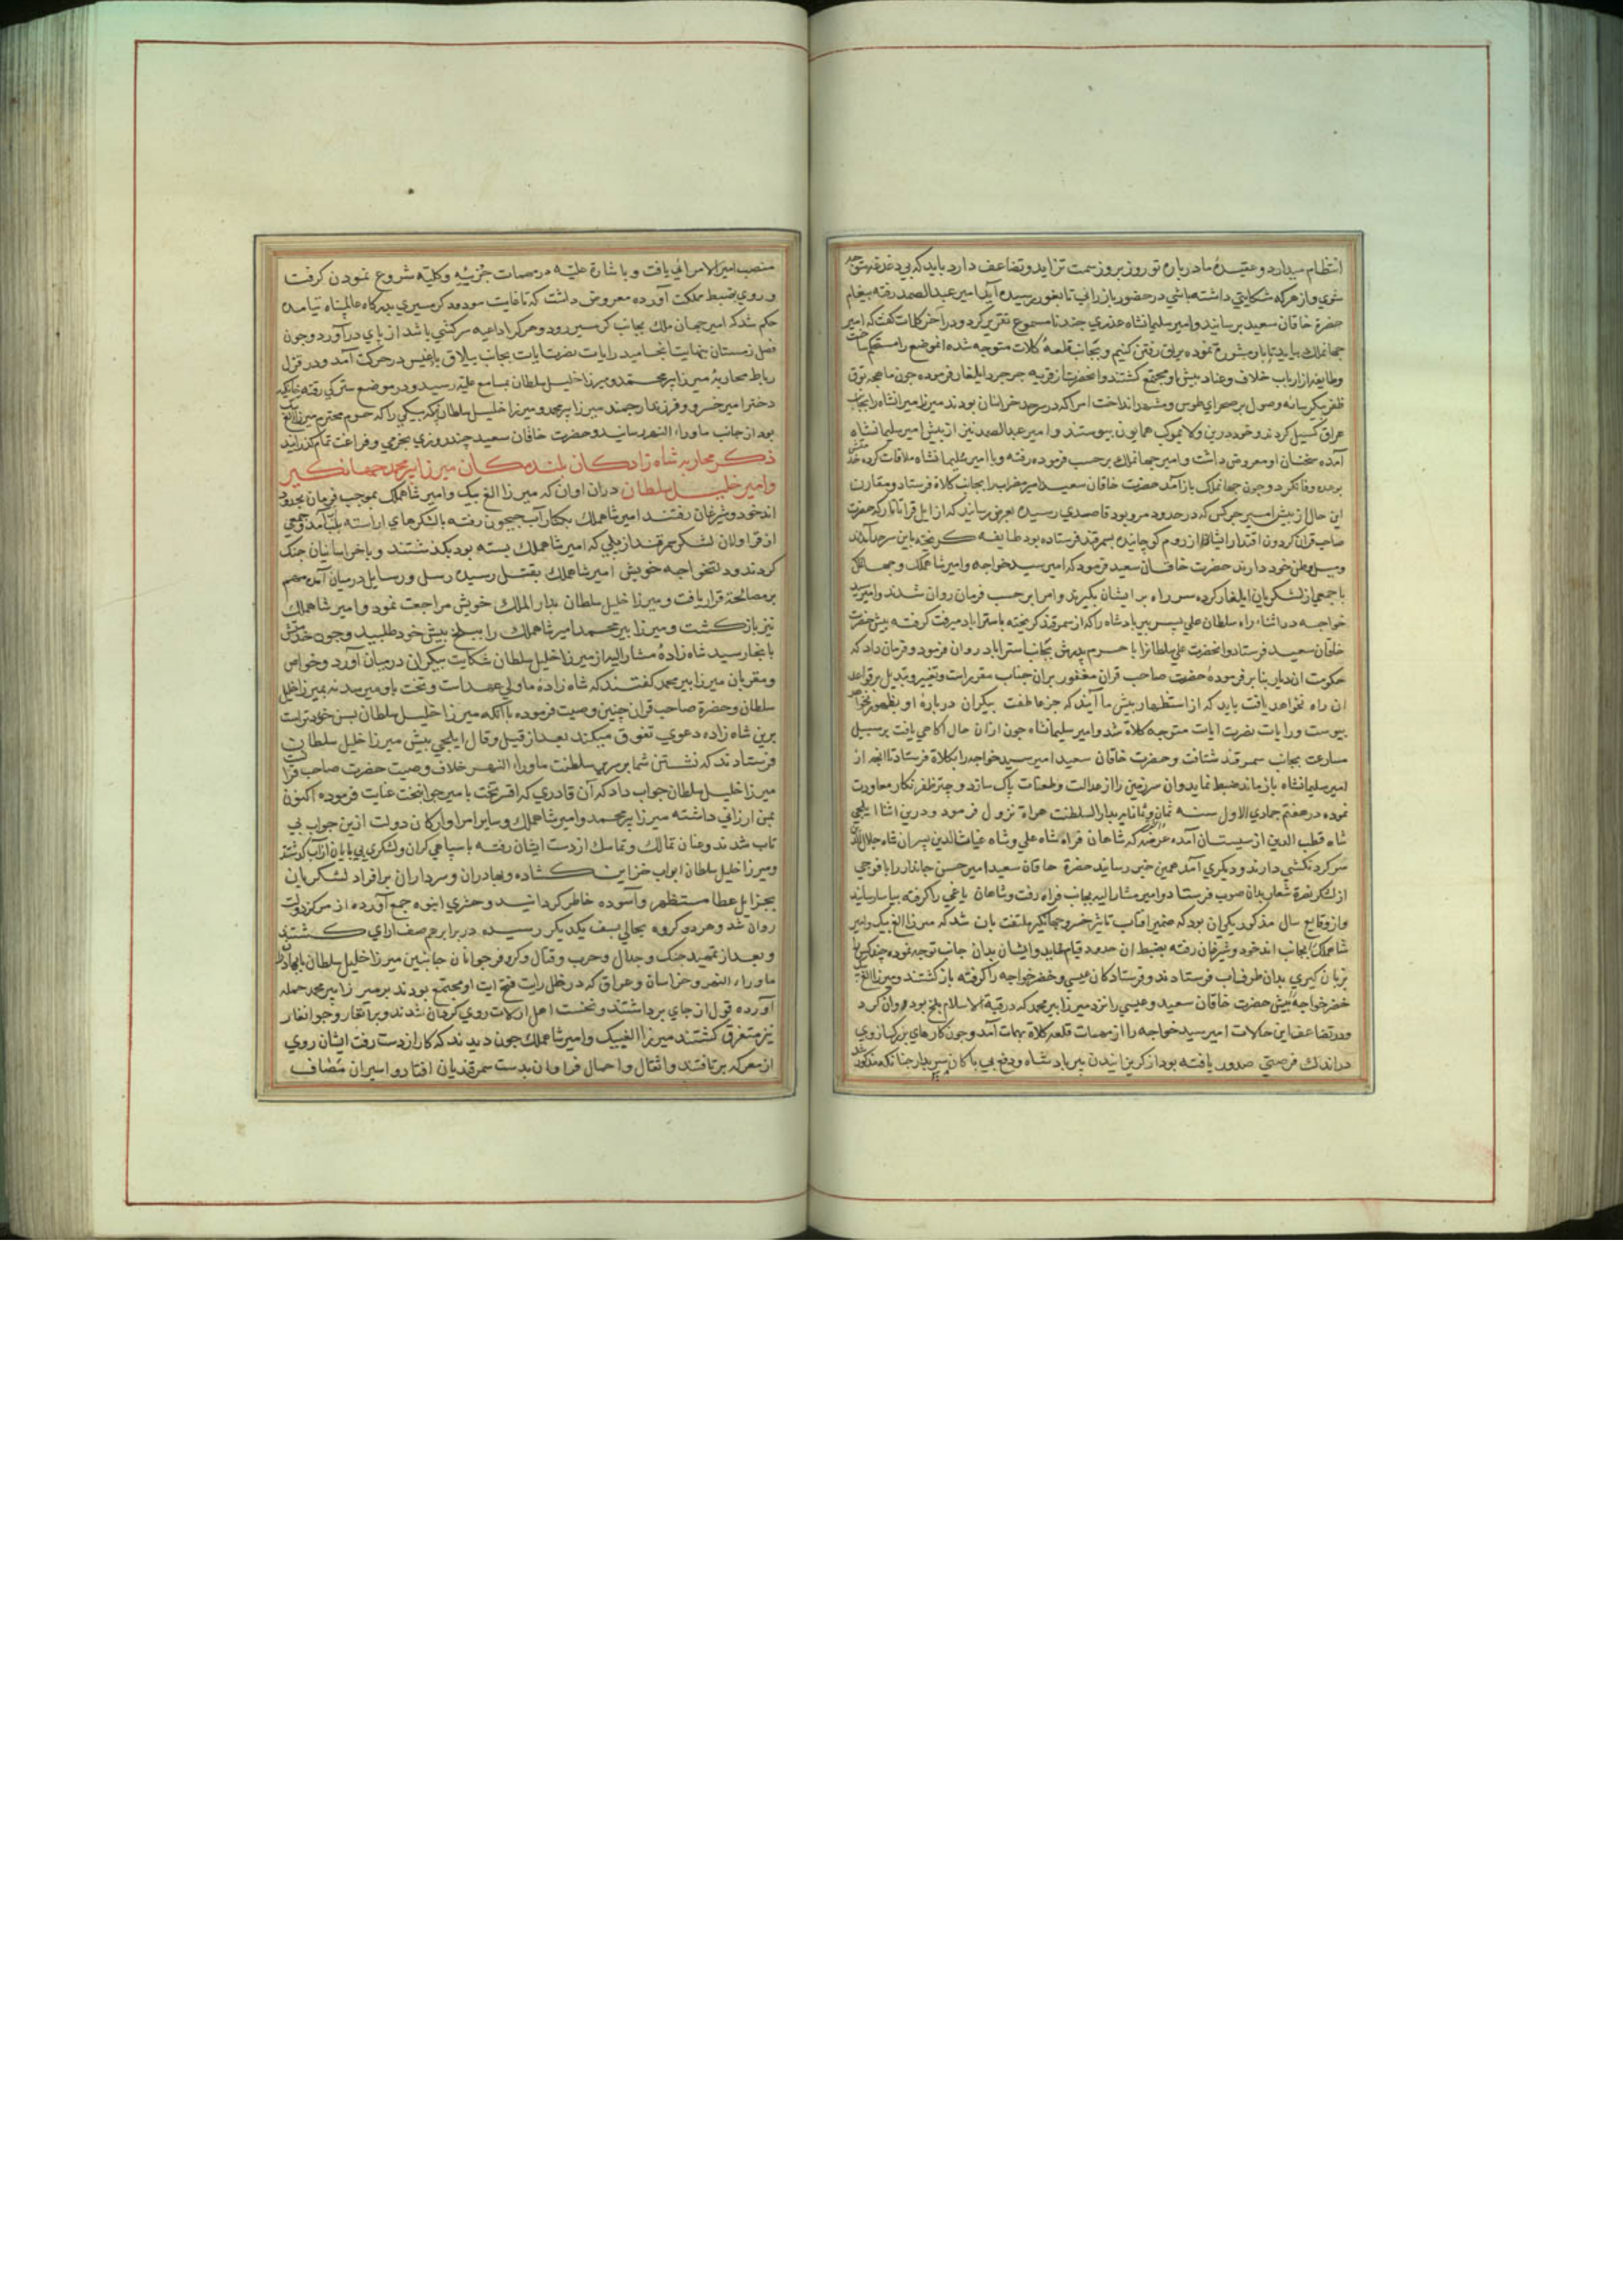 انتظام میدارد و عقیدهٔ ما درباره تو روز بروز سمت تزاید و تضاعف دارد باید که بی دغدغه متوجه
شوی و از هرکه شکایتی داشته باشی در حضور باز رانی تا بغور رسیده آید امیر عبد الصمد رفته پیغام
حضرة خاقان سعید برسانید و امیر سلیمانشاه عذری چند نا مسموع تقریر کرد و در آخر کلمات گفت که امیر
جهانملک بیاید تا باو مشورة نموده براق رفتن کنیم و بجانب قلعهٔ کلات متوجه شده انموضع را مستحکم ساخت
وطایفه از ارباب خلاف و عناد پیش او مجتمع کشتند و انحضرت از قریه جرجرد ایلغار فرموده جون ماهچه توق
ظفر پیکر سایه وصول بر صحرای طوس و مشهد انداخت امرا که در سرحد خراسان بودند میرزا میرانشاه را بجانب
عراق کسیل کردند و خود درین ولا بموکب همایون پیوستند و امیر عبد الصمد نیز از پیش امیر سلیمانشاه
آمده سخنان او معروض داشت و امیر جهانملک بر حسب فرموده رفته و با امیر سلیمانشاه ملاقات کرده
بوعده وفا نکرد و جون جهانملک باز آمد حضرت خاقان سعید امیر مضراب را بجانب کلاة فرستاد و مقارن
این حال از پیش امیر جرکس که در حدود مرو بود قاصدی رسیده بعرض رسانید که از ایل قراتاتار که حضرت
صاحب قران کردون اقتدار ایشانرا از روم کوچانیده بسمرقند فرستاده بود طایفه کریخته باین سرحد آمدند
ومیل وطن خود دارند حضرت خاقان سعید فرمود که امیر سید خواجه و امیر شاهملک و جهانملک
با جمعی از لشکریان ایلغار کرده سر راه بر ایشان بکیرند و امرا بر حسب فرمان روان شدند و امیر سید
خواجه در اثناء راه سلطان علی پسر پیر پادشاه را که از سمرقند کریخته باستراباد میرفت کرفته پیش حضرت
خاقان سعید فرستاد و انحضرت علی سلطانرا با حرم پدرش بجانب استراباد روان فرمود و فرمان داد که
حکومت اندیار بنا بر فرمودهٔ حضرت صاحب قران مغفور بران جناب مقرر است و تغییر و تبدیل بر قواعد
ان راه نخواهد یافت باید که از استظهار پیش ما آیند که جز عاطفت بیکران درباره او بظهور نخواهد
پیوست و رایات نصرت ایات متوجه کلاة شد و امیر سلیمانشاه جون ازان حال آکاهی یافت بر سبیل
مسارعت بجانب سمرقند شتافت و حضرت خاقان سعید امیر سید خواجه را بکلاة فرستاد تا انچه از
امیر سلیمانشاه باز ماند ضبط نماید و ان سرزمین را از عدالت وطعنات پاک سازد و چتر ظفر نکار معاودت
نموده در هفتم جمادی الاول سنه ثمان و ثمانمایه بدار السلطنت هراة نزول فرمود و درین اثنا ایلچی
شاه قطب الدین از سیستان آمده عرضه کرد که شاهان فراه شاه علی و شاه غیاث الدین پسران شاه جلال الدین
سر کردنکشی دارند و دیکری آمد همین خبر رسانید حضرة خاقان سعید امیر حسن جاندار را با فوجی
از لشکر نصرة شعار بدان صوب فرستاد و امیر مشار الیه بجانب فراه رفت و شاهان یاغی را کرفته بیاسا رسانید
واز وقایع سال مذکور یکی ان بود که ضمیر افتاب تاثیر خسرو جهانکیر ملتفت بان شد که میرزا الغ بیک و امیر
شاهملک بجانب اندخود و شبرغان رفته بضبط ان حدود قیام نمایند و ایشان بدان جانب توجه نموده چند کس را
بزبان کیری بدان طرف اب فرستادند و فرستادکان عیسی و خضر خواجه را کرفته باز کشتند و میرزا الغ بیک
خضر خواجه را پیش حضرت خاقان سعید و عیسی را نزد میرزا پیر محمد که در قبة الاسلام بلخ بود روان کرد
ودر تضاعف این حالات امیر سید خواجه را از مهمات قلعه کلاة بهمات آمد و جون کارهای بزرک از وی
در اندک فرصتی صدور یافته بود از کریزانیدن پیر پادشاه و دفع بی باکان سربدار چنانکه مذکور شد
منصب امیر الامرائی یافت و باشارة علیه در مهمات جزئیه و کلیه شروع نمودن کرفت
و روی بضبط مملکت آورده معروض داشت که تا غایت مودود کرمسیری بدرکاه عالم پناه نیامده
حکم شد که امیر جهان ملک بجانب کرمسیر رود و هر کرا داعیه سرکشی باشد از پای در آورد و جون
فصل زمستان بنهایت انجامید رایات نصرت ایات بجانب ییلاق بادغیس در حرکت آمد و در قزل
رباط محاربهٔ میرزا پیر محمد و میرزا خلیل سلطان بمسامع علیه رسید و در موضع سترکی رفته خانیکه
دختر امیر خسرو و فرزندار جمند میرزا پیر محمد و میرزا خلیل سلطان بیکه بیکی را که حرم محترم میرزا الغ بیک
بود از جانب ماوراء النهر رسانید و حضرت خاقان سعید چند روزی بخرمی و فراغت تمام کذرانید
ذکر محاربه شاه زادکان بلند مکان میرزا پیر محمد جهانکیر
وامیر خلیل سلطان دران اوان که میرزا الغ بیک و امیر شاهملک بموجب فرمان بحدود
اندخود و شبرغان رفتند امیر شاهملک بکنار آب جیحون رفته با لشکرهای اراسته بلب آمد و جمعی
از قراولان لشکر سمرقند از پلی که امیر شاهملک بسته بود بکذشتند و با خراسانیان جنک
کردند و دلتخواجه خویش امیر شاهملک بقتل رسیده رسل و رسایل درمیان آمد و مهم
بر مصالحه قرار یافت و میرزا خلیل سلطان بدار الملک خویش مراجعت نمود و امیر شاهملک
نیز باز کشت و میرزا پیر محمد امیر شاهملک را ببلخ پیش خود طلبید و جون خدمتش
بانجا رسید شاه زادهٔ مشار الیه از میرزا خلیل سلطان شکایت بیکران درمیان آورد و خواص
ومقربان میرزا پیر محمد کفتند که شاه زادهٔ ما ولی عهد است و تخت باو میرسد نه بمیرزا خلیل
سلطان و حضرة صاحب قران چنین وصیت فرموده با آنکه میرزا خلیل سلطان بسن خردتر است
برین شاه زاده دعوی تفوق میکند بعد از قیل و قال ایلچی پیش میرزا خلیل سلطان
فرستادند که نشستن شما بر سریر سلطنت ماوراء النهر خلاف وصیت حضرت صاحب قرانست
میرزا خلیل سلطان جواب داد که آن قادری که افسر و تخت بامیر جوانبخت عنایت فرموده اکنون
بمن ارزانی داشته میرزا پیر محمد و امیر شاهملک و سایر امرا و ارکان دولت ازین جواب بی
تاب شدند و عنان تمالک و تماسک از دست ایشان رفته با سپاهی کران و لشکری بی پایان از آب کذشتند
ومیرزا خلیل سلطان ابواب خزاین کشاده و بهادران و سرداران بر افراد لشکریان
بجزایل عطا مستظهر و آسوده خاطر کردانید و حشری انبوه جمع آورده از مرکز دولت
روان شد و هر دو کروه بحوالی نسف بیکدیکر رسیده در برابر هم صف ارای کشتند
وبعد از تمهید جنک و جدال و حرب و قتال و کر و فر جوانان جانبین میرزا خلیل سلطان با بهادران
ماوراء النهر و خراسان و عراق که در ظل رایت فتح ایت او مجتمع بودند بر میرزا پیر محمد حمله
آورده قول از جای برداشتند و نخست اهل ارلات روی کردان شدند و برانغار و جوانغار
نیز متفرق کشتند میرزا الغبیک و امیر شاهملک جون دیدند که کار از دست رفت ایشان روی
از معرکه برتافتند و اثقال و احمال فراوان بدست سمرقندیان افتاد و اسیران مضاف